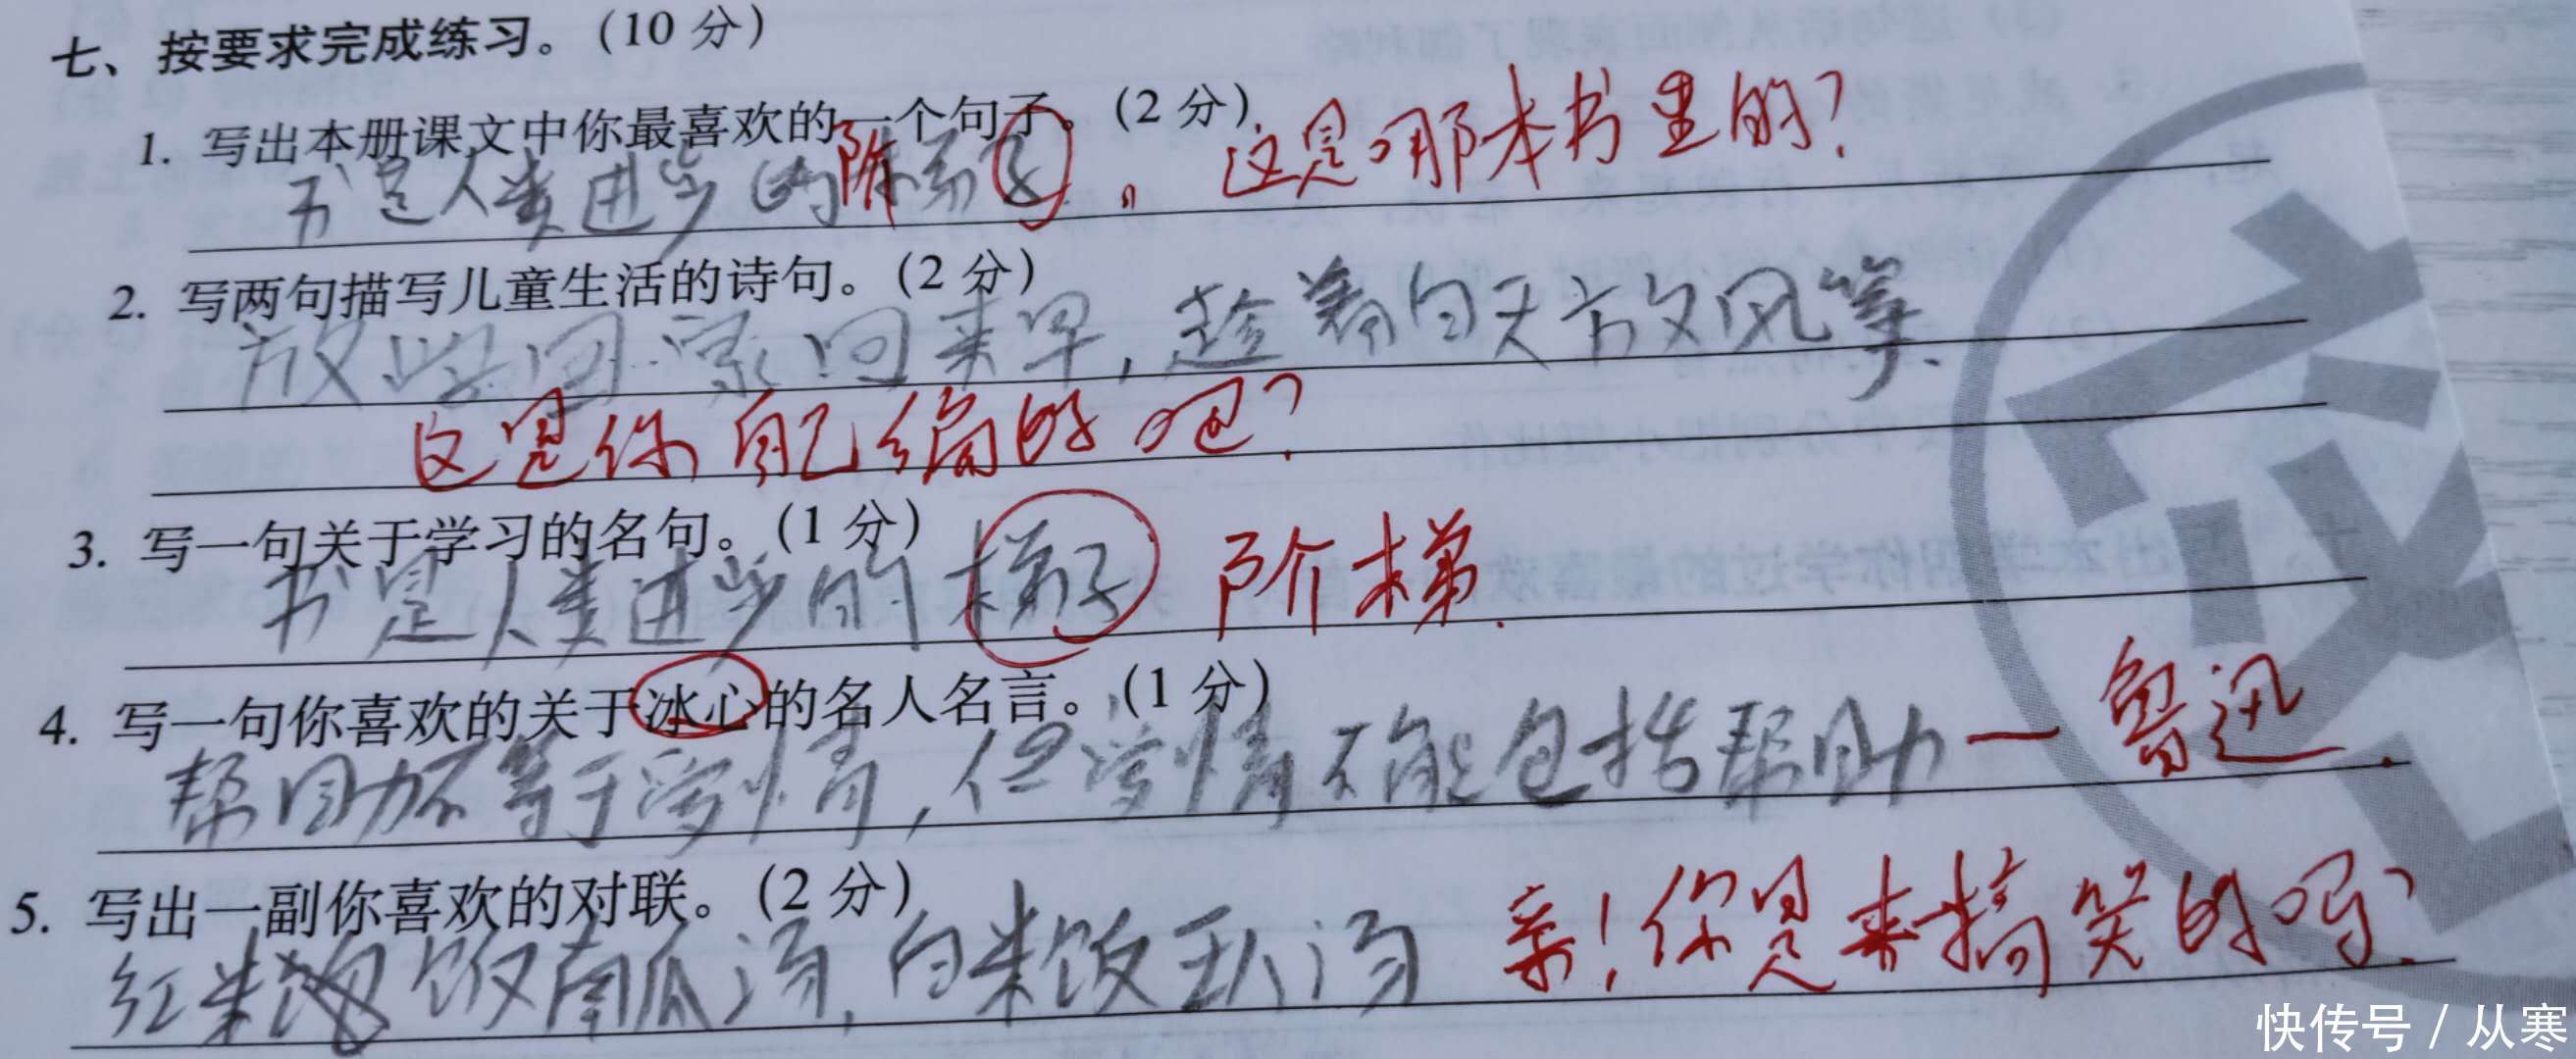 七、按要求完成练习。(10 分)
1. 写出本册课文中你最喜欢的一个句子。(2 分)
书是人类进步的阶梯子。 这是哪本书里的?
2. 写两句描写儿童生活的诗句。(2 分)
放学回家回来早,趁着白天方攵风筝.
这是你自己编的吧?
3. 写一句关于学习的名句。(1 分)
书是人类进步的梯子 阶梯.
4. 写一句你喜欢的关于冰心的名人名言。(1 分)
帮助不等于爱情,但爱情不能包括帮助一鲁迅.
5. 写出一副你喜欢的对联。(2 分)
红米饭南瓜汤,白米饭汤 亲!你是来搞笑的吗?
快传号 / 从寒